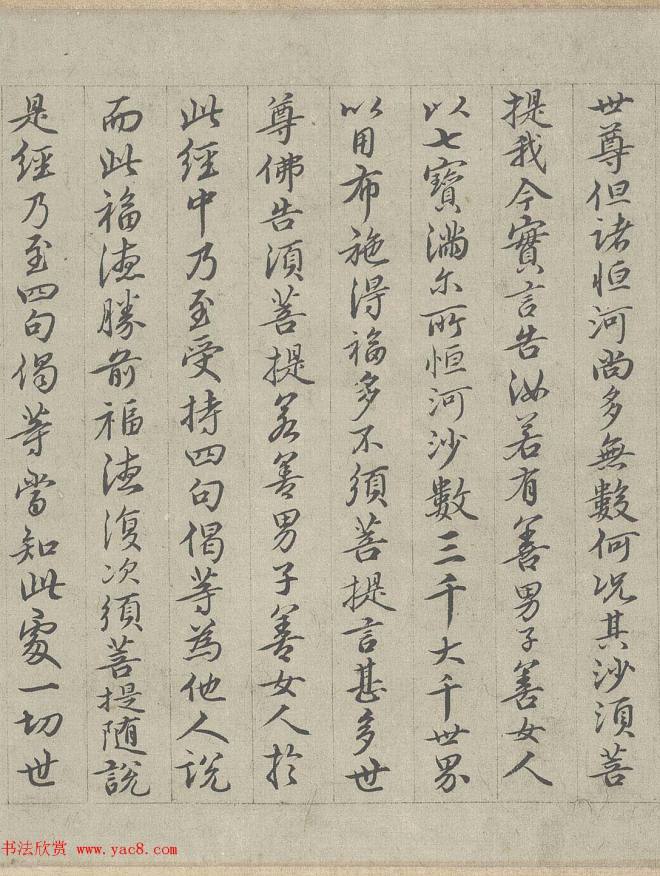 世尊但諸恒河尚多無數何況其沙須菩
提我今實言告汝若有善男子善女人
以七寶滿尓所恒河沙數三千大千世界
以用布施得福多不須菩提言甚多世
尊佛告須菩提若善男子善女人於
此經中乃至受持四句偈等為他人說
而此福德勝前福德復次須菩提隨說
是經乃至四句偈等當知此處一切世
书法欣赏 www.yac8.com